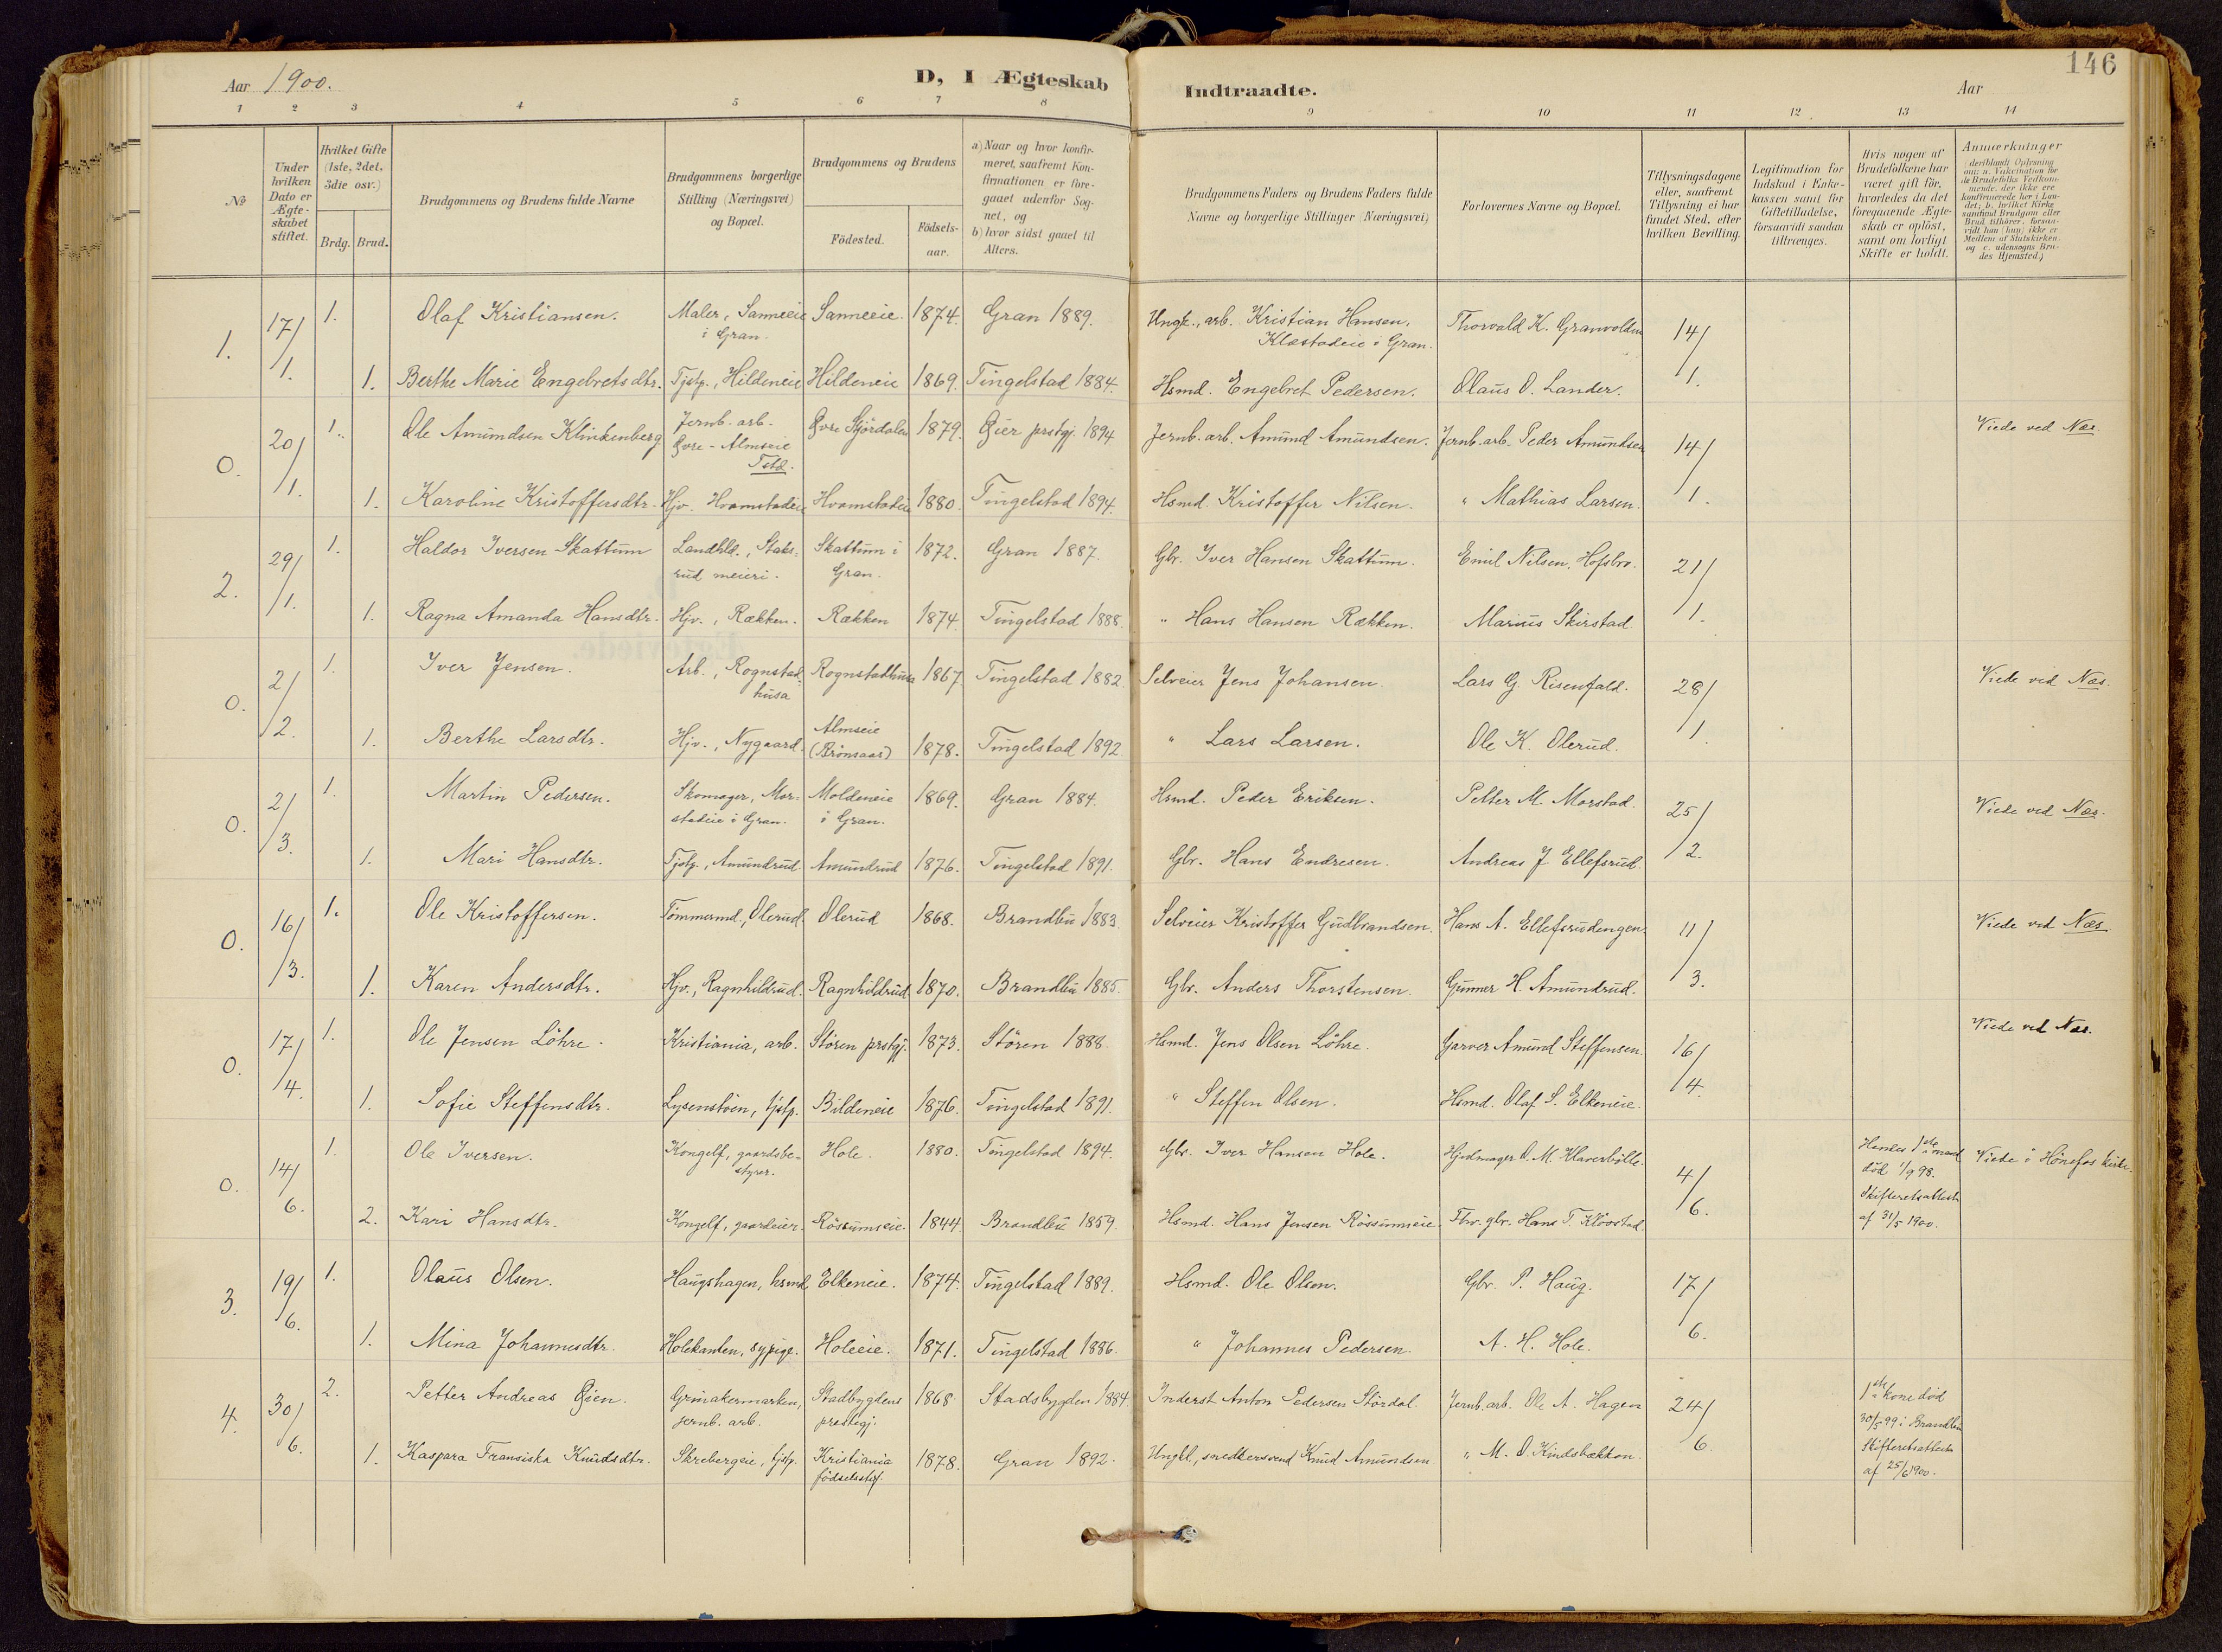 146
Aar 1900.
D, I Ægteskab Indtraadte.
Aar
1 2 3 4 5 6 7 8 9 10 11 12 13 14
№
Under hvilken Dato er Ægteskabet stiftet.
Hvilket Gifte (1ste, 2det, 3die osv.)
Brdg. Brud.
Brudgommens og Brudens fulde Navne
Brudgommens borgerlige Stilling (Næringsvei) og Bopæl.
Brudgommens og Brudens
Födested.
Födselsaar.
a) Naar og hvor konfirmeret, saafremt Konfirmationen er foregaaet udenfor Sognet, og
b) hvor sidst gaaet til Alters.
Brudgommens Faders og Brudens Faders fulde Navne og borgerlige Stillinger (Næringsvei)
Forlovernes Navne og Bopæl.
Tillysningsdagene eller, saafremt Tillysning ei har fundet Sted, efter hvilken Bevilling.
Legitimation for Indskud i Enkekassen samt for Giftetilladelse, forsaavidt saadan tiltrænges.
Hvis nogen af Brudefolkene har været gift för, hvorledes da det foregaaende Ægteskab er oplöst, samt om lovligt Skifte er holdt.
Anmærkninger (deriblandt Oplysning om: a. Vakcination for de Brudefolks Vedkommende, der ikke ere konfirmerede her i Landet; b. hvilket Kirkesamfund Brudgom eller Brud tilhörer, forsaavidt han (hun) ikke er Medlem af Statskirken, og c. udensogns Brudes Hjemsted.)
1. 17/1. 1. Olaf Kristiansen. Maler, Sanneeie i Gran. Sanneeie. 1874. Gran 1889. Ungk., arb. Kristian Hansen, Klæstadeie i Gran. Thorvald K. Granvolden 14/1.
1. Berthe Marie Engebretsdtr. Tjstp., Hildeneie Hildeneie 1869. Tingelstad 1884. Hsmd. Engebret Pedersen. Olaus O. Lander.
0. 20/1. 1. Ole Amundsen Klinkenberg Jernb. arb. Øvre-Almseie Tstd. Øvre Stjördalen 1879. Øier prstgj. 1894 Jernb. arb. Amund Amundsen. Jernb. arb. Peder Amundsen 14/1. Viede ved Næs
1. Karoline Kristoffersdtr. Hjv. Hvamstadeie Hvamstadeie 1880. Tingelstad 1894. Hsmd. Kristoffer Nilsen. " Mathias Larsen.
2. 29/1. 1. Haldor Iversen Skattum Landhld., Staksrud meieri. Skattum i Gran. 1872. Gran 1887. Gbr. Iver Hansen Skattum. Emil Nilsen, Hofsbro. 21/1.
1. Ragna Amanda Hansdtr. Hjv., Rækken. Rækken 1874. Tingelstad 1888. " Hans Hansen Rækken. Marius Skirstad
0. 2/2. 1. Iver Jensen. Arb., Rognstadhusa Rognstadhusa 1867 Tingelstad 1882. Selveier Jens Johansen. Lars G. Risenfald. 28/1. Viede ved Næs.
1. Berthe Larsdtr. Hjv., Nygaard. Almseie (Brönsaas) 1878. Tingelstad 1892 " Lars Larsen. Ole K. Olerud.
0. 2/3. 1. Martin Pedersen. Skomager, Morstadeie i Gran. Moldeneie i Gran. 1869. Gran 1884. Hsmd. Peder Eriksen. Petter M. Morstad. 25/2. Viede ved Næs.
1. Mari Hansdtr. Tjstp., Amundrud. Amundrud 1876. Tingelstad 1891. Gbr. Hans Endresen. Andreas J. Ellefsrud.
0. 16/3. 1. Ole Kristoffersen. Tömmermd., Olerud. Olerud 1868. Brandbu 1883. Selveier Kristoffer Gudbrandsen. Hans A. Ellefsrudengen. 11/3. Viede ved Næs.
1. Karen Andersdtr. Hjv., Ragnhildrud. Ragnhildrud 1870. Brandbu 1885. Gbr. Anders Thorstensen. Gunner H. Amundrud.
0. 17/4. 1. Ole Jensen Löhre. Kristiania, arb. Stören prstgj. 1873. Stören 1888. Hsmd. Jens Olsen Löhre. Garver Amund Steffensen. 16/4. Viede ved Næs.
1. Sofie Steffensdtr. Lysenstöen, tjstp. Bildeneie 1876. Tingelstad 1891. " Steffen Olsen. Hsmd. Olaf S. Elkeneie.
0. 14/6. 1. Ole Iversen. Kongelf, gaardsbestyrer. Hole. 1880. Tingelstad 1894. Gbr. Iver Hansen Hole. Hjulmager O. M. Klaverbölle. 4/6. Hendes 1ste mand död 1/9 98. Skifteretsattest af 31/5 1900. Viede i Hönefos kirke.
2. Kari Hansdtr. Kongelf, gaardeier. Rössumseie. 1844. Brandbu 1859. Hsmd. Hans Jensen Rössumseie. Fhv. gbr. Hans T. Klövstad.
3. 19/6. 1. Olaus Olsen. Haugshagen, hsmd. Elkeneie. 1874. Tingelstad 1889. Hsmd. Ole Olsen. Gbr. P. Haug. 17/6.
1. Mina Johannesdtr. Holekanten, sypige. Holeeie. 1871. Tingelstad 1886. " Johannes Pedersen. A. H. Hole.
4. 30/6. 2. Petter Andreas Øien. Grinakermarken, jernb. arb. Stadbygdens prestegj. 1868. Stadsbygden 1884. Inderst Anton Pedersen Stördal. Jernb. arb. Ole A. Hagen 24/6. 1ste kone död 30/5 99 i Brandbu Skifteretsattest af 25/6 1900.
1. Kaspara Fransiska Knudsdtr. Skrebergeie, tjstp. Kristiania födselsstif. 1878. Gran 1892. Ungkl, snedkersvend Knud Amundsen " M. O. Kindsbækken.